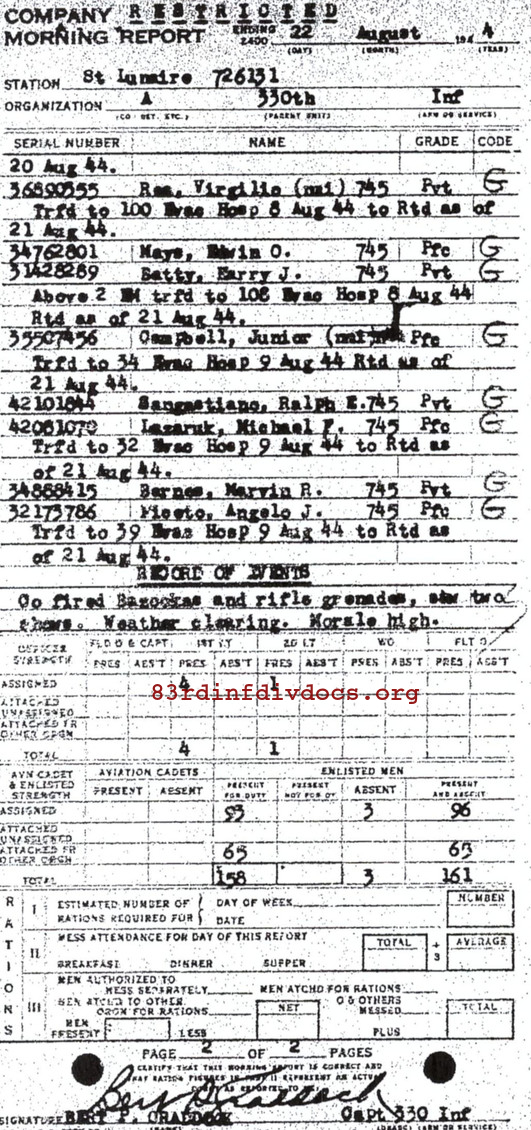 COMPANY RESTRICTED
MORNING REPORT ENDING 2400 22 August 194 4
(DAY) (MONTH) (YEAR)
STATION St Lunaire 726131
ORGANIZATION A 330th Inf
(CO. DET. ETC.) (PARENT UNIT) (ARM OR SERVICE)
SERIAL NUMBER NAME GRADE CODE
20 Aug 44.
36890555 Virgilio (nmi) 745 Pvt G
Trfd to 100 Evac Hosp 8 Aug 44 to Rtd as of
21 Aug 44.
34762801 Mays, Edwin O. 745 Pfc G
31428289 Batty, Harry J. 745 Pvt G
Above 2 EM trfd to 108 Evac Hosp 8 Aug 44
Rtd as of 21 Aug 44.
35507456 Campbell, Junior (nmi) Pfc G
Trfd to 34 Evac Hosp 9 Aug 44 Rtd as of
21 Aug 44.
42101644 Ralph E. 745 Pvt G
42081070 Lazaruk, Michael F. 745 Pfc G
Trfd to 32 Evac Hosp 9 Aug 44 to Rtd as
of 21 Aug 44.
34888415 Barnes, Marvin R. 745 Pvt G
32173786 Angelo J. 745 Pfc G
Trfd to 39 Evac Hosp 9 Aug 44 to Rtd as
of 21 Aug 44.
RECORD OF EVENTS
Co fired Bazookas and rifle grenades, saw two
shows. Weather clearing. Morale high.
OFFICER STRENGTH FLD O & CAPT 1ST LT 2D LT WO FLT O
PRES ABS'T PRES ABS'T PRES ABS'T PRES ABS'T PRES ABS'T
ASSIGNED 4 1
83rdinfdivdocs.org
ATTACHED UNASSIGNED
ATTACHED FR OTHER ORGN
TOTAL 4 1
AVN CADET & ENLISTED STRENGTH AVIATION CADETS ENLISTED MEN
PRESENT ABSENT PRESENT FOR DUTY PRESENT NOT FOR DY ABSENT PRESENT AND ABSENT
ASSIGNED 93 3 96
ATTACHED UNASSIGNED
ATTACHED FR OTHER ORGN 65 65
TOTAL 158 3 161
RATIONS
I ESTIMATED NUMBER OF RATIONS REQUIRED FOR DAY OF WEEK NUMBER
DATE
II MESS ATTENDANCE FOR DAY OF THIS REPORT TOTAL ÷ 3 AVERAGE
BREAKFAST DINNER SUPPER
III MEN AUTHORIZED TO MESS SEPARATELY MEN ATCHD FOR RATIONS
MEN ATCHD TO OTHER ORGN FOR RATIONS NET O & OTHERS MESSED TOTAL
MEN PRESENT LESS PLUS
PAGE 2 OF 2 PAGES
CERTIFY THAT THIS MORNING REPORT IS CORRECT AND
THAT RATION FIGURES IN PART II REPRESENT AN ACTUAL
COUNT AS REPORTED TO ME:
SIGNATURE BERT P. CRADDOCK Capt 330 Inf
(NAME) (GRADE) (ARM OR SERVICE)